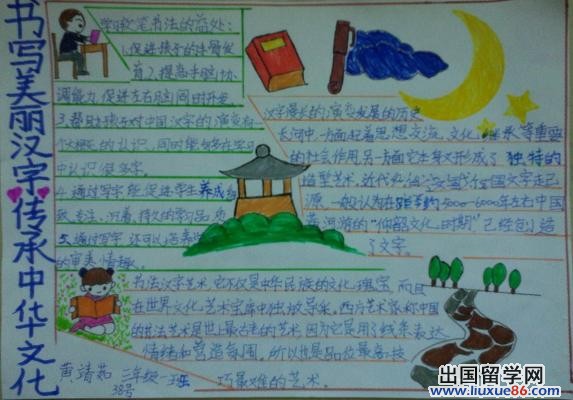 书写美丽汉字传承中华文化
学习软笔书法的益处:
1.促进孩子的手臂发
育2、提高手脑协
调能力,促进左右脑同时开发。
3.帮助孩子对中国汉字的演变和
的认识,同时能够在学习
中认识很多字。
4.通过写字能促进学生养成细
致、专注、沉着、持久的学习品质
5.通过写字,还可以培养学
的审美情趣。
汉字漫长的演变发展的历史
长河中,一方面起着思想交流、文化继承等重要
的社会作用,另一方面它本身又形成了独特的
造型艺术,近代
源,一般认为在距今约5000-6000年左右中国
黄河游的“仰韶文化时期”已经创造
了文字。
书法汉字艺术,它不仅是中华民族的文化瑰宝,而且
在世界文化艺术宝库中独放异采。西方艺术家称中国
的书法艺术是世上最古老的艺术,因为它采用了线条表达
情绪和营造氛围。所以也是品位最高技
巧最难的艺术。
黄靖茹 二年级一班
38号
出国留学网
www.liuxue86.com